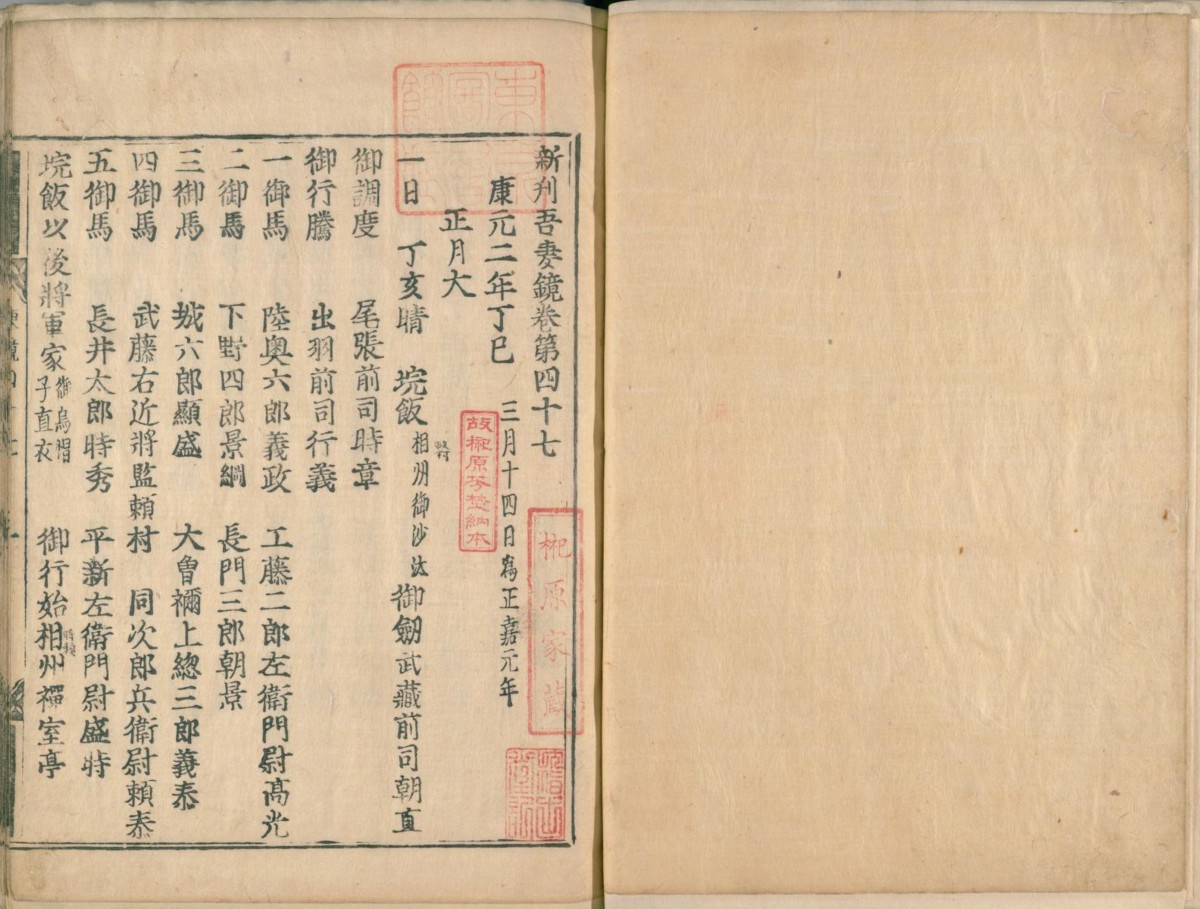 新刊吾妻鏡卷第四十七
康元二年丁巳　三月十四日爲正嘉元年
正月大
一日　丁亥晴　垸飯　相州御沙汰　御劔武藏前司朝直
御調度　尾張前司時章
御行騰　出羽前司行義
一御馬　陸奥六郎義政　工藤二郎左衛門尉髙光
二御馬　下野四郎景綱　長門三郎朝景
三御馬　城六郎顯盛　大曾禰上總三郎義泰
四御馬　武藤右近將監頼村　同次郎兵衛尉頼泰
五御馬　長井太郎時秀　平新左衛門尉盛時
垸飯以後將軍家　御烏帽子直衣　御行始相州禪室亭
故榊原芳埜納本
榊原家藏